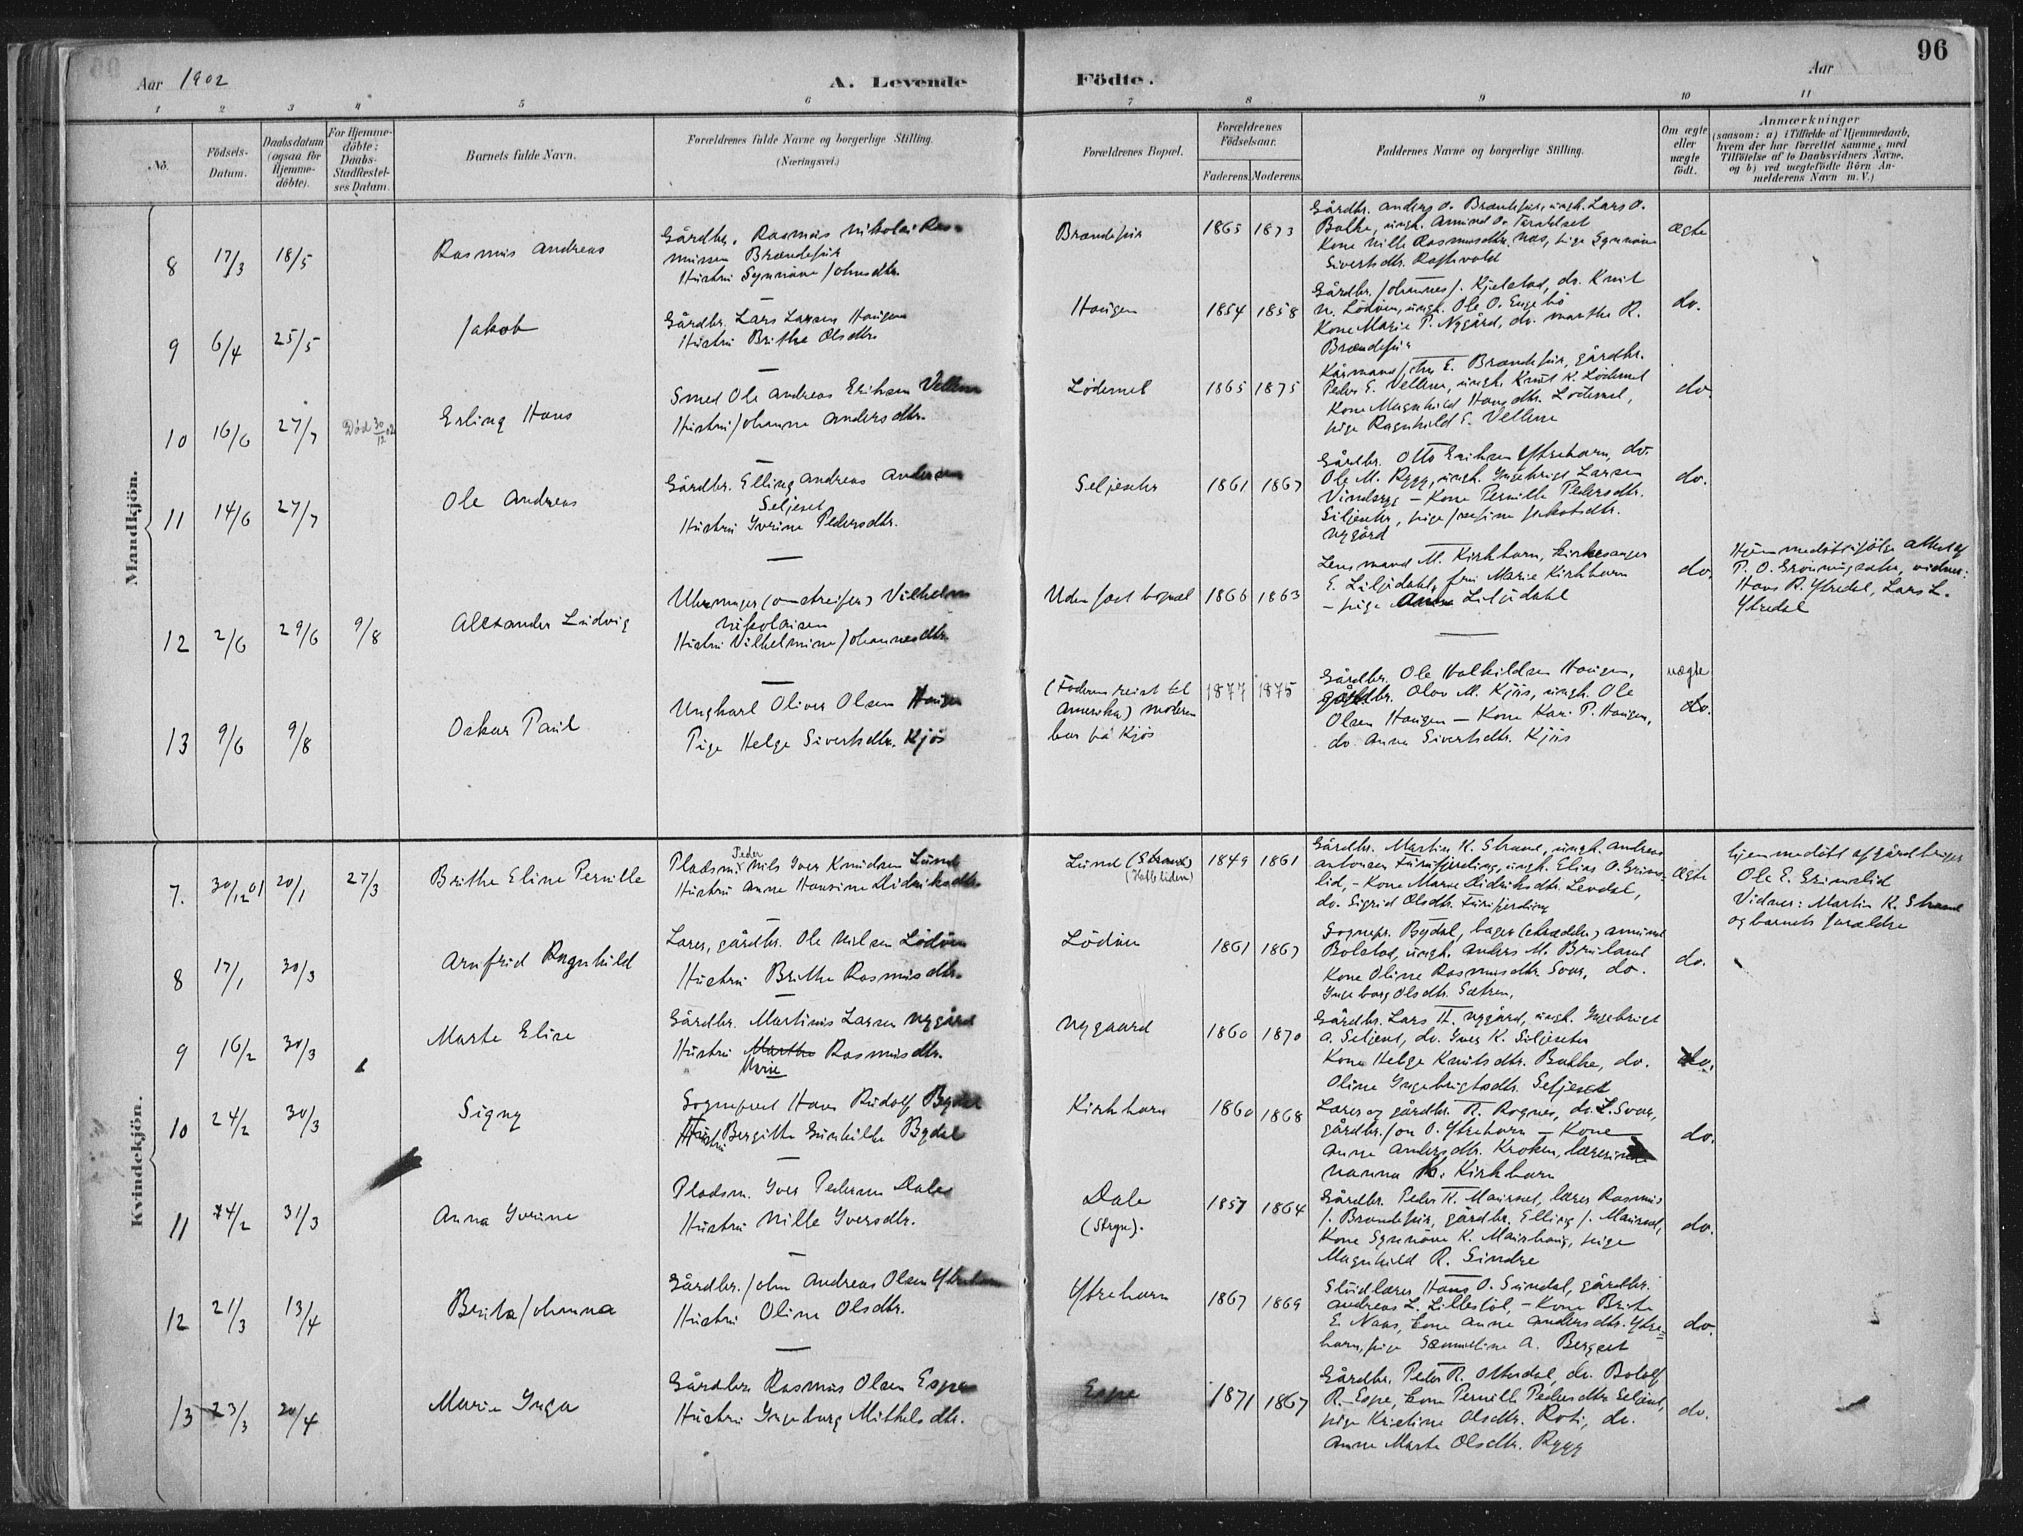 96
Aar 1902
A. Levende
Födte.
Aar
1 2 3 4 5 6 7 8 9 10 11
No.
Födsels-Datum.
Daabsdatum (ogsaa for Hjemme-döbte).
For Hjemme-döbte: Daabs-Stadfæstel-ses Datum.
Barnets fulde Navn.
Forældrenes fulde Navne og borgerlige Stilling.
(Næringsvei.)
Forældrenes Bopæl.
Forældrenes Födselsaar.
Faderens. Moderens.
Faddernes Navne og borgerlige Stilling.
Om ægte eller uægte födt.
Anmærkninger
(saasom: a) i Tilfælde af Hjemmedaab,
hvem der har forrettet samme, med
Tilföielse af to Daabsvidners Navne,
og b) ved uægtefödte Börn An-
melderens Navn m. V.)
Mandkjön.
8 17/3 18/5 Rasmus Andreas
Gårdbr. Rasmus Nikolai Ras-
mussen Brændefur
Hustru Synnöve Johnsdtr.
Brændefur 1865 1873
Gårdbr. Anders O. Brændefur, ungk. Lars O.
Bakke, ungk. Amund O. Taraldset
Kone Nille Rasmusdtr. Nos, pige Synnöve
Sivertsdtr. Raftevold
ægte
9 6/4 25/5 Jakob
Gårdbr. Lars Larsen Haugen
Hustru Brithe Olsdtr.
Haugen 1854 1858
Gårdbr. Johannes J. Kjelstad, do. Knut
N. Lödöen, ungk. Ole O. Engebö
Kone Marie P. Nygård, do. Marthe R.
Brændefur
do.
10 16/6 27/7 Död 30/12 02 Erling Hans
Smed Ole Andreas Eriksen Vellene
Hustru Johanne Andersdtr.
Lödemel 1865 1875
Kårmand E. Brændefur, gårdbr.
Peder E. Vellene, ungk. Knut K. Lödemel
Kone Magnhild Hansdtr. Lödemel,
pige Ragnhild E. Vellene
do.
11 14/6 27/7 Ole Andreas
Gårdbr. Elling Andreas Andersen
Seljeset
Hustru Iverine Pedersdtr.
Seljeseter 1861 1867
Gårdbr. Otto Eriksen Ytrehorn, do.
Ole M. Rygg, ungk. Ingebrigt Larsen
Vindsryg – Kone Pernille Pedersdtr.
Seljeseter, pige Josefine Jakobsdtr.
Nygård
do.
12 2/6 29/6 9/8 Alexander Ludvig
Uhrmager (omstreifer) Vilhelm
Nikolaisen
Hustru Vilhelmine Johannesdtr.
Uden fast bopæl 1866 1863
Lensmand M. Kirkhorn, kirkesanger
E. Liljedahl, fru Marie Kirkhorn
– pige Anna Liljedahl
do.
Hjemmedöbt ifölge attest af
P. O. Gronningsæter, vidner:
Hans R. Ytredal, Lars L.
Ytredal
13 9/6 9/8 Oskar Paul
Ungkarl Oliver Olsen Haugen
Pige Helge Sivertsdtr. Kjös
(Faderen reist til
Amerika) moderen
bor på Kjös
1877 1875
Gårdbr. Ole Halkildsen Haugen,
gårdbr. Olav M. Kjös, ungk. Ole
Olsen Haugen – Kone Kari P. Haugen,
do. Anna Sivertsdtr. Kjös
uægte
do.
Kvindekjön.
7. 30/12 01 20/1 27/3 Brithe Eline Pernille
Peder
Pladsm. Nils Iver Knudsen Lunde
Hustru Anne Hansine Didriksdtr.
Lund (Strand) 1849 1861
Gårdbr. Martin K. Strand, ungk. Andreas
Antonsen Furufjerding, ungk. Elias O. Grims-
lid, – Kone Marie Didriksdtr. Levdal,
do. Sigrid Olsdtr. Furufjerding
ægte
hjemmedöbt af gårdbruger
Ole E. Grimslid
Vidner: Martin K. Strand
og barnets forældre
8 17/1 30/3 Arnfrid Ragnhild
Lærer, gårdbr. Ole Nilsen Lödöen
Hustru Brithe Rasmusdtr.
Lödöen 1861 1867
Sognepr. Bydal, bager Amund
Bolstad, ungk. Anders M. Bruland
Kone Oline Rasmusdtr. Svor, do.
Ingeborg Olsdtr. Sætren,
do.
9 16/2 30/3 Marte Elise
Gårdbr. Martinus Larsen Nygård
Hustru Marthe Rasmusdtr.
Marie
Nygaard 1860 1870
Gårdbr. Lars H. Nygård, ungk. Ingebrigt
A. Seljeset, do. Iver K. Seljeseter
Kone Helge Knutsdtr. Bakke, do.
Oline Ingebrigtsdtr. Seljeset
do.
10 24/2 30/3 Signy
Sogneprest Hans Rudolf Bydal
Hustru Bergitte Gunhilde Bydal
Kirkhorn 1860 1868
Lærer og gårdbr. R. Rognes, do. L. Svor,
gårdbr. Jon O. Ytrehorn – Kone
Anne Andersdtr. Kroken, lærerinde
Nanna K. Kirkhorn
do.
11 24/2 31/3 Anna Iverine
Pladsm. Iver Pedersen Dale
Hustru Nille Iversdtr.
Dale
(Stryn).
1857 1864
Gårdbr. Peder K. Maurset, lærer Rasmus
J. Brændefur, gårdbr. Elling J. Maurset,
Kone Synnöve K. Maurhaug, pige
Magnhild R. Sindre
do.
12 21/3 13/4 Berita Johanna
Gårdbr. John Andreas Olsen Ytrehorn
Hustru Oline Olsdtr.
Ytrehorn 1867 1869
Hans O. Sundal, gårdbr.
Andreas L. Lillestöl, – Kone Brithe
E. Naas, Kone Anne Andersdtr. Ytre-
horn, pige A. Berget
do.
13 23/3 20/4 Marie Inga
Gårdbr. Rasmus Olsen Espe
Hustru Ingeborg Mikkelsdtr.
Espe 1871 1867
Gårdbr. Peder R. Otterdal, do. Botolf
R. Espe, Kone Pernille Pedersdtr. Seljeset,
pige Kristine Olsdtr. Roti, do.
Anne Marte Olsdtr. Rygg
do.